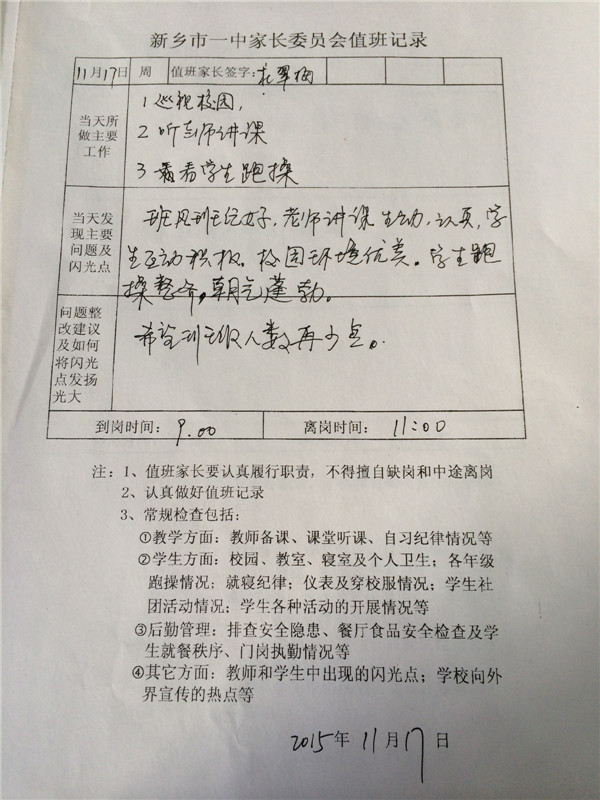 新乡市一中家长委员会值班记录
11月17日 周 值班家长签字: 翠梅
当天所做主要工作
1 巡视校园,
2 听老师讲课
3 看学生跑操
当天发现主要问题及闪光点
班风班纪好,老师讲课生动,认真,学
生互动积极。校园环境优美。学生跑
操整齐,朝气蓬勃。
问题整改建议及如何将闪光点发扬光大
希望班级人数再少点。
到岗时间: 9.00 离岗时间: 11:00
注:1、值班家长要认真履行职责,不得擅自缺岗和中途离岗
2、认真做好值班记录
3、常规检查包括:
①教学方面:教师备课、课堂听课、自习纪律情况等
②学生方面:校园、教室、寝室及个人卫生;各年级
跑操情况;就寝纪律;仪表及穿校服情况;学生社
团活动情况;学生各种活动的开展情况等
③后勤管理:排查安全隐患、餐厅食品安全检查及学
生就餐秩序、门岗执勤情况等
④其它方面:教师和学生中出现的闪光点;学校向外
界宣传的热点等
2015年11月17日